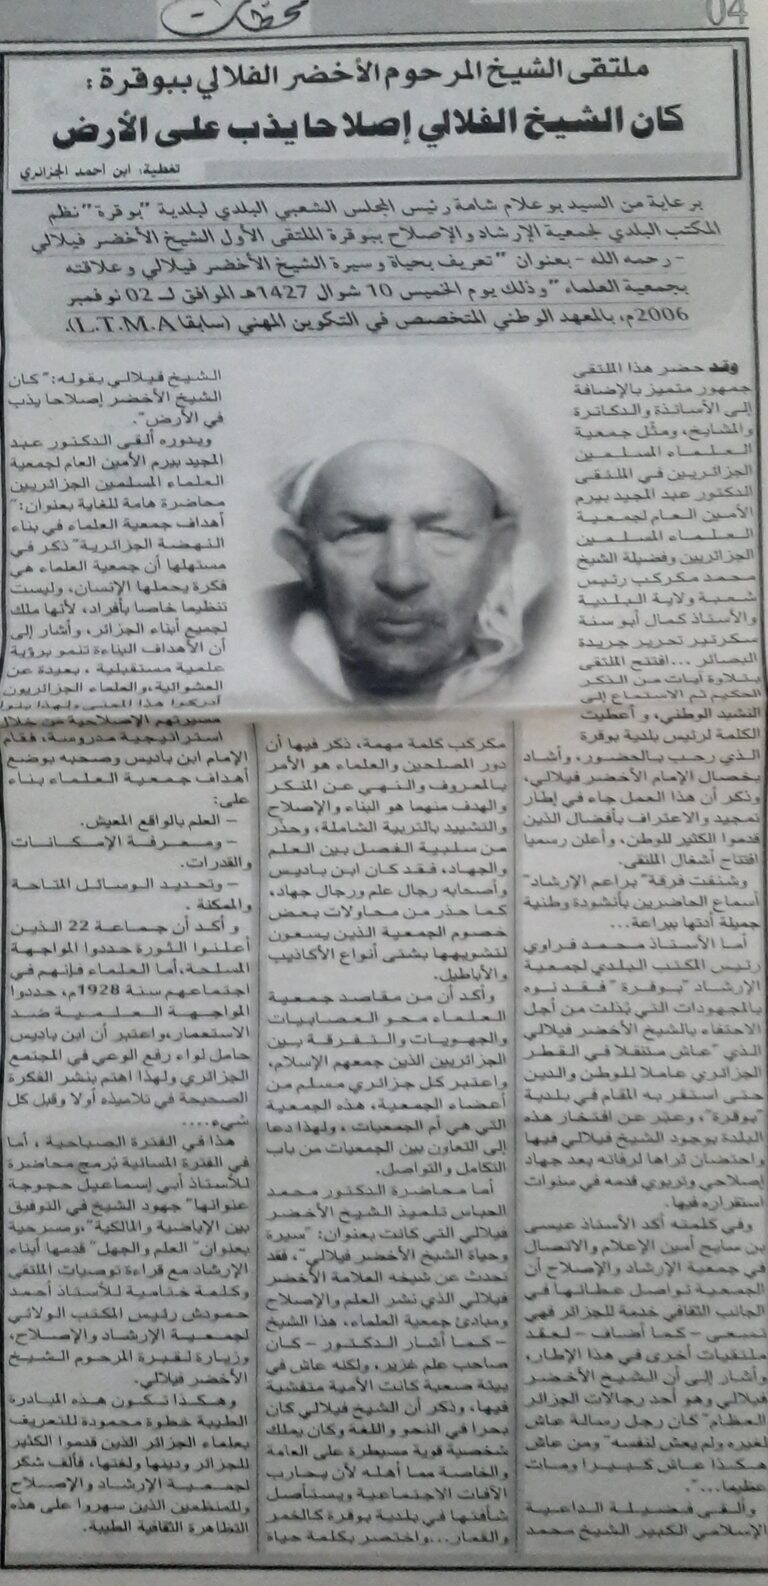 04
محطات
ملتقى الشيخ المرحوم الأخضر الفلالي ببوقرة :
كان الشيخ الفلالي إصلاحا يذب على الأرض
تغطية: ابن احمد الجزائري
برعاية من السيد بوعلام شامة رئيس المجلس الشعبي البلدي لبلدية "بوقرة" نظم
المكتب البلدي لجمعية الإرشاد والإصلاح ببوقرة الملتقى الأول الشيخ الأخضر فيلالي
-رحمه الله -بعنوان "تعريف بحياة وسيرة الشيخ الأخضر فيلالي وعلاقته
بجمعية العلماء "وذلك يوم الخميس 10 شوال 1427هـ الموافق لـ 02 نوفمبر
2006م، بالمعهد الوطني المتخصص في التكوين المهني (سابقا L.T.M.A).
وقد حضر هذا الملتقى
جمهور متميز بالإضافة
إلى الأساتذة والدكاترة
والمشايخ، ومثّل جمعية
العلماء المسلمين
الجزائريين في الملتقى
الدكتور عبد المجيد بيرم
الأمين العام لجمعية
العلماء المسلمين
الجزائريين وفضيلة الشيخ
محمد مكركب رئيس
شعبة ولاية البليدة
والأستاذ كمال أبو سنة
سكرتير تحرير جريدة
البصائر ...افتتح الملتقى
بتلاوة آيات من الذكر
الحكيم ثم الاستماع إلى
النشيد الوطني، و أعطيت
الكلمة لرئيس بلدية بوقرة
الذي رحب بالحضور، وأشاد
بخصال الإمام الأخضر فيلالي،
وذكر أن هذا العمل جاء في إطار
تمجيد والاعتراف بأفضال الذين
قدموا الكثير للوطن، وأعلن رسميا
افتتاح أشغال الملتقى.
وشنفت فرقة "براعم الإرشاد"
أسماع الحاضرين بأنشودة وطنية
جميلة أدتها ببراعة...
أما الأستاذ محمد قراوي
رئيس المكتب البلدي لجمعية
الإرشاد "بوقرة " فقد نوه
بالمجهودات التي بُذلت من أجل
الاحتفاء بالشيخ الأخضر فيلالي
الذي "عاش متنقلا في القطر
الجزائري عاملا للوطن والدين
حتى استقر به المقام في بلدية
"بوقرة"، وعبّر عن افتخار هذه
البلدة بوجود الشيخ فيلالي فيها
واحتضان ثراها لرفاته بعد جهاد
إصلاحي وتربوي قدمه في سنوات
استقراره فيها.
وفي كلمته أكد الأستاذ عيسى
بن سايح أمين الإعلام والاتصال
في جمعية الإرشاد والإصلاح أن
الجمعية تواصل عطائها في
الجانب الثقافي خدمة للجزائر فهي
تسعى - كما أضاف - لعقد
ملتقيات أخرى في هذا الإطار،
وأشار إلى أن الشيخ الأخضر
فيلالي وهو أحد رجالات الجزائر
العظام "كان رجل رسالة عاش
لغيره ولم يعش لنفسه "ومن عاش
هكذا عاش كبيرا ومات
عظيما...".
وألقى فضيلة الداعية
الإسلامي الكبير الشيخ محمد
مكركب كلمة مهمة، ذكر فيها أن
دور المصلحين والعلماء هو الأمر
بالمعروف والنهي عن المنكر
والهدف منهما هو البناء والإصلاح
والتشييد بالتربية الشاملة، وحذّر
من سلبية الفصل بين العلم
والجهاد، فقد كان ابن باديس
وأصحابه رجال علم ورجال جهاد،
كما حذر من محاولات بعض
خصوم الجمعية الذين يسعون
لتشويهها بشتى أنواع الأكاذيب
والأباطيل.
وأكد أن من مقاصد جمعية
العلماء محو العصابيات
والجهويات والتفرقة بين
الجزائريين الذين جمعهم الإسلام،
واعتبر كل جزائري مسلم من
أعضاء الجمعية، هذه الجمعية
التي هي أم الجمعيات ، ولهذا دعا
إلى التعاون بين الجمعيات من باب
التكامل والتواصل.
أما محاضرة الدكتور محمد
الحباس تلميذ الشيخ الأخضر
فيلالي التي كانت بعنوان: "سيرة
وحياة الشيخ الأخضر فيلالي"، فقد
تحدث عن شيخه العلامة الأخضر
فيلالي الذي نشر العلم والإصلاح
ومبادئ جمعية العلماء، هذا الشيخ
- كما أشار الدكتور - كان
صاحب علم غزير، ولكنه عاش في
بيئة صعبة كانت الأمية متفشية
فيها، وذكر أن الشيخ فيلالي كان
بحرا في النحو واللغة وكان يملك
شخصية قوية مسيطرة على العامة
والخاصة مما أهله لأن يحارب
الآفات الاجتماعية ويستأصل
شأفتها في بلدية بوقرة كالخمر
والقمار...واختصر بكلمة حياة
الشيخ فيلالي بقوله: "كان
الشيخ الأخضر إصلاحا يذب
في الأرض".
وبدوره ألقى الدكتور عبد
المجيد بيرم الأمين العام لجمعية
العلماء المسلمين الجزائريين
محاضرة هامة للغاية بعنوان: "
أهداف جمعية العلماء في بناء
النهضة الجزائرية" ذكر في
مستهلها أن جمعية العلماء هي
فكرة يحملها الإنسان، وليست
تنظيما خاصا بأفراد، لأنها ملك
لجميع أبناء الجزائر، وأشار إلى
أن الأهداف البناءة تنمو برؤية
علمية مستقبلية ، بعيدة عن
العشوائية، والعلماء الجزائريون
أدركوا هذا المعنى ولهذا بنوا
مسيرتهم الإصلاحية من خلال
استراتيجية مدروسة، فقام
الإمام ابن باديس وصحبه بوضع
أهداف جمعية العلماء بناء
على:
- العلم بالواقع المعيش.
- ومعرفة الإمكانات
والقدرات.
- وتحديد الوسائل المتاحة
والممكنة .
و أكد أن جماعة 22 الذين
أعلنوا الثورة حددوا المواجهة
المسلحة، أما العلماء فإنهم في
اجتماعهم سنة 1928م، حددوا
المواجهة العلمية ضد
الاستعمار،واعتبر أن ابن باديس
حامل لواء رفع الوعي في المجتمع
الجزائري ولهذا اهتم بنشر الفكرة
الصحيحة في تلاميذه أولا وقبل كل
شيء....
هذا في الفترة الصباحية ، أما
في الفترة المسائية بُرمج محاضرة
للأستاذ أبي إسماعيل حجوجة
عنوانها" جهود الشيخ في التوفيق
بين الإباضية والمالكية"،ومسرحية
بعنوان" العلم والجهل" قدمها أبناء
الإرشاد مع قراءة توصيات الملتقى
وكلمة ختامية للأستاذ أحمد
حمودش رئيس المكتب الولائي
لجمعية الإرشاد والإصلاح،
وزيارة لمقبرة المرحوم الشيخ
الأخضر فيلالي.
وهكذا تكون هذه المبادرة
الطيبة خطوة محمودة للتعريف
بعلماء الجزائر الذين قدموا الكثير
للجزائر ودينها ولغتها، فألف شكر
لجمعية الإرشاد والإصلاح
وللمنظمين الذين سهروا على هذه
التظاهرة الثقافية الطيبة.